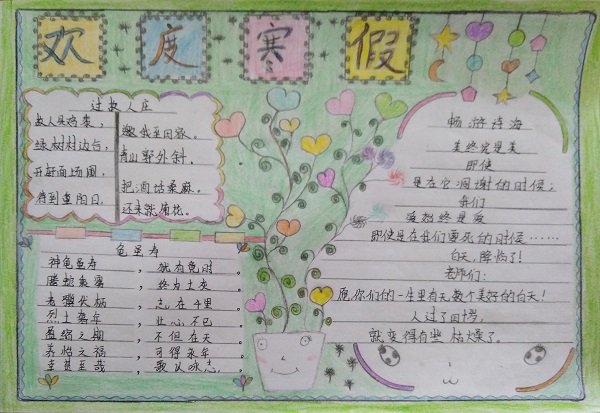 欢度寒假
过故人庄
故人具鸡黍，
邀我至田家。
绿树村边合，
青山郭外斜。
开轩面场圃，
把酒话桑麻。
待到重阳日，
还来就菊花。
龟虽寿
神龟虽寿，犹有竟时。
腾蛇乘雾，终为土灰。
老骥伏枥，志在千里。
烈士暮年，壮心不已。
盈缩之期，不但在天
养怡之福，可得永年
幸甚至哉，歌以咏志。
畅游诗海
美终究是美
即使
是在它凋谢的时候；
我们
爱始终是爱
即使是在我们要死的时候……
白天，降临了！
老师们：
愿你们的一生里有无数个美好的白天！
人过了四十，
就变得有些枯燥了。